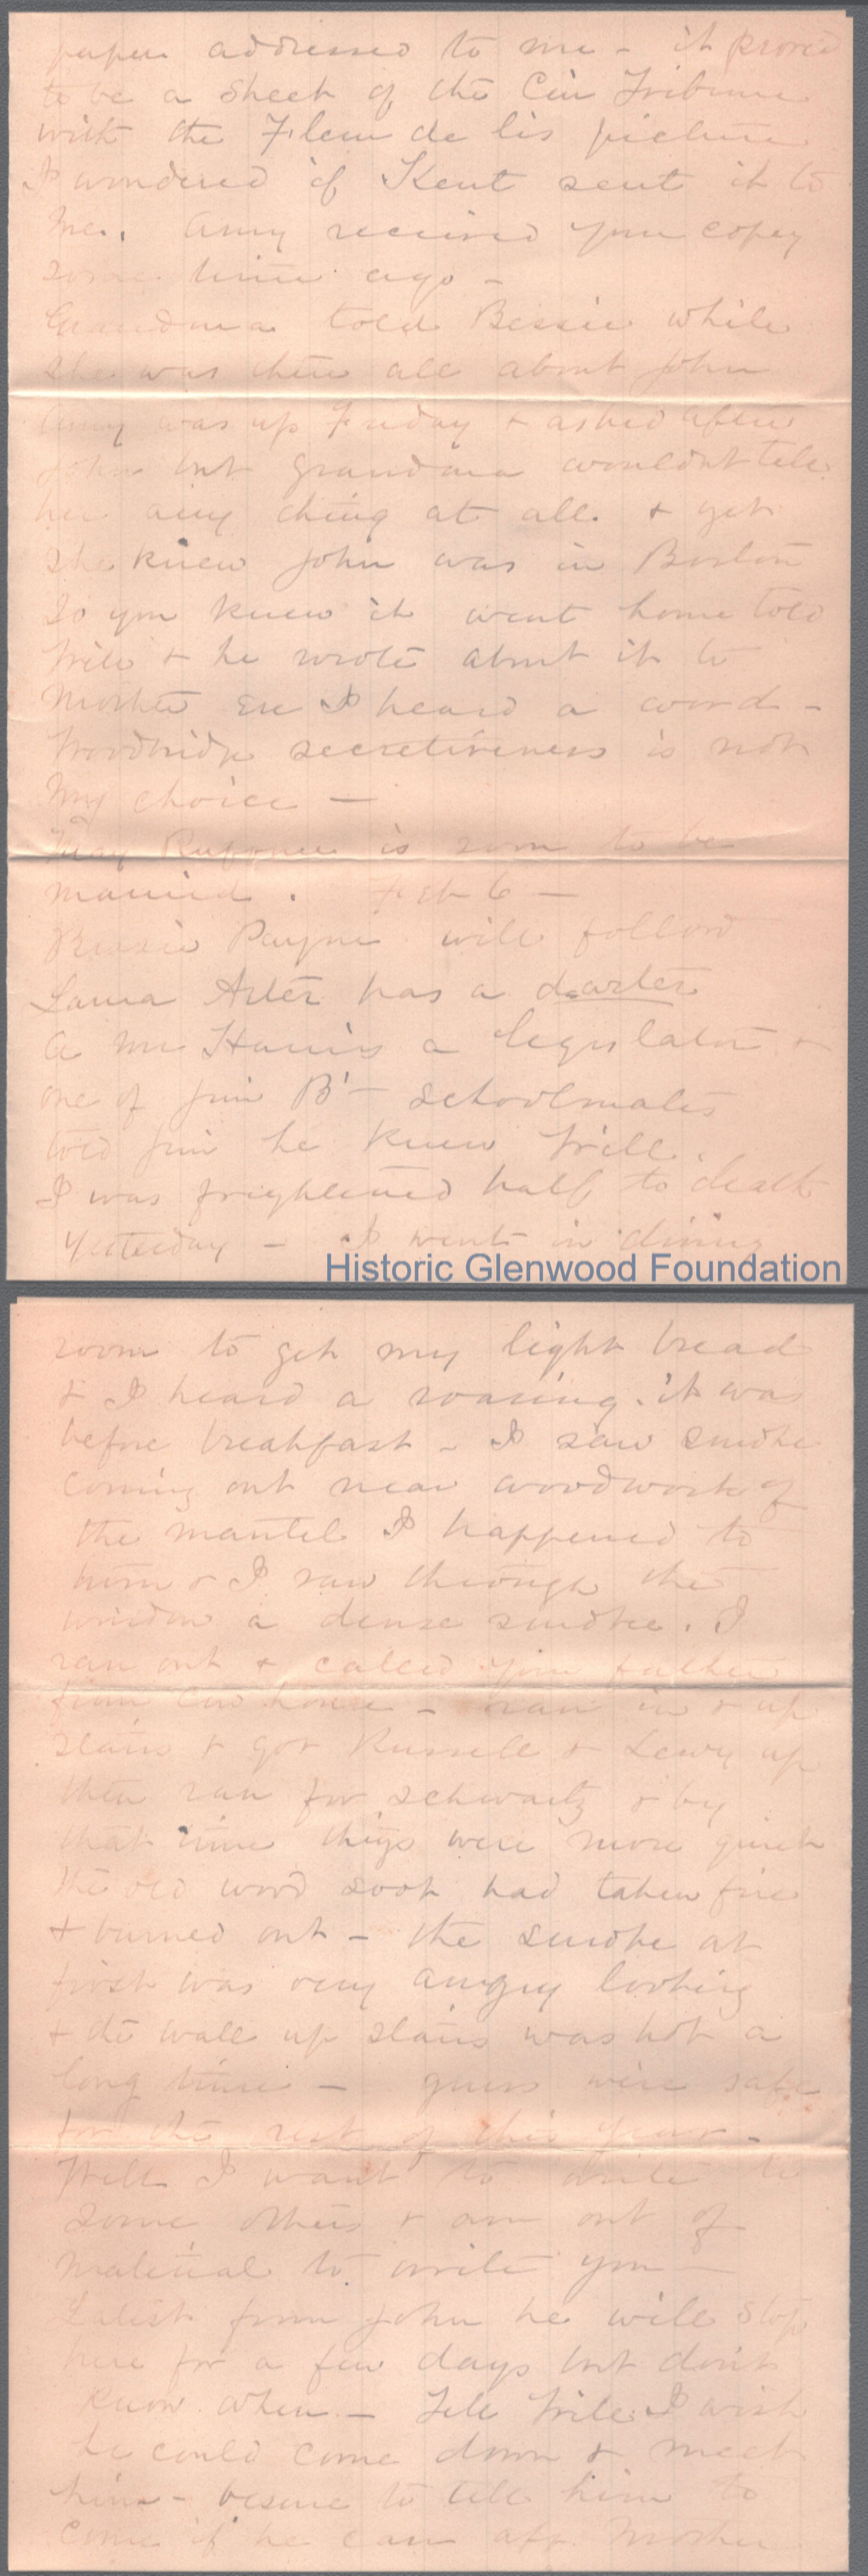 paper addressed to me - it proved
to be a sheet of the Cin Tribune
with the Fleur de lis picture
I wondered if Kent sent it to
me. Amy received your copy
some time ago -
Grandma told Bessie while
she was there all about John
Amy was up Friday & asked after
John but Grandma wouldnt tell
her any thing at all. & yet
she knew John was in Boston
So you knew it went home told
Will & he wrote about it to
Mother ere I heard a word -
Woodbridge secretiveness is not
my choice -
May Ruffner is soon to be
married. Feb 6 -
Bessie Payne will follow
Laura Arter has a darter
A Mr Harris a legislator &
one of Jim B's schoolmates
told Jim he knew Will.
I was frightened half to death
yesterday - I went in dining
Historic Glenwood Foundation
room to get my light bread
& I heard a roaring. it was
before breakfast - I saw smoke
coming out near woodwork of
the mantel I happened to
turn & I saw through the
window a dense smoke. I
ran out & called your father
from cow house - ran in & up
stairs & got Russell & Lewy up
then ran for Schwartz & by
that time things were more quiet
the old wood soot had taken fire
& burned out - the smoke at
first was very angry looking
& the wall up stairs was hot a
long time - guess we're safe
for the rest of this year -
Well I want to write to
some others & am out of
material to write you -
Latest from John he will stop
here for a few days but don't
know when - Tell Will I wish
he could come down & meet
him - besure to tell him to
come if he can aff. Mother